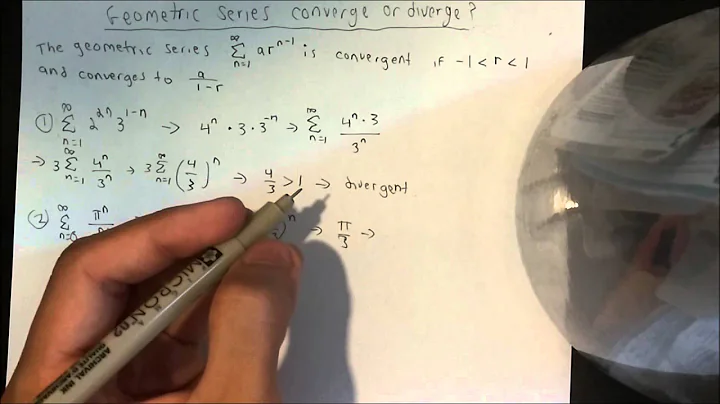 Geometric series converge or diverge?
The geometric series ∞ Σ n=1 ar^(n-1) is convergent if -1 < r < 1
and converges to a/(1-r)
① ∞ Σ n=1 2^(2n) 3^(1-n) → 4^n · 3 · 3^(-n) → ∞ Σ n=1 (4^n · 3)/3^n
→ 3 ∞ Σ n=1 4^n/3^n → 3 ∞ Σ n=1 (4/3)^n → 4/3 > 1 → divergent
② ∞ Σ π^n )^n → π/3 →
MICRON 02
ARCHIVAL INK